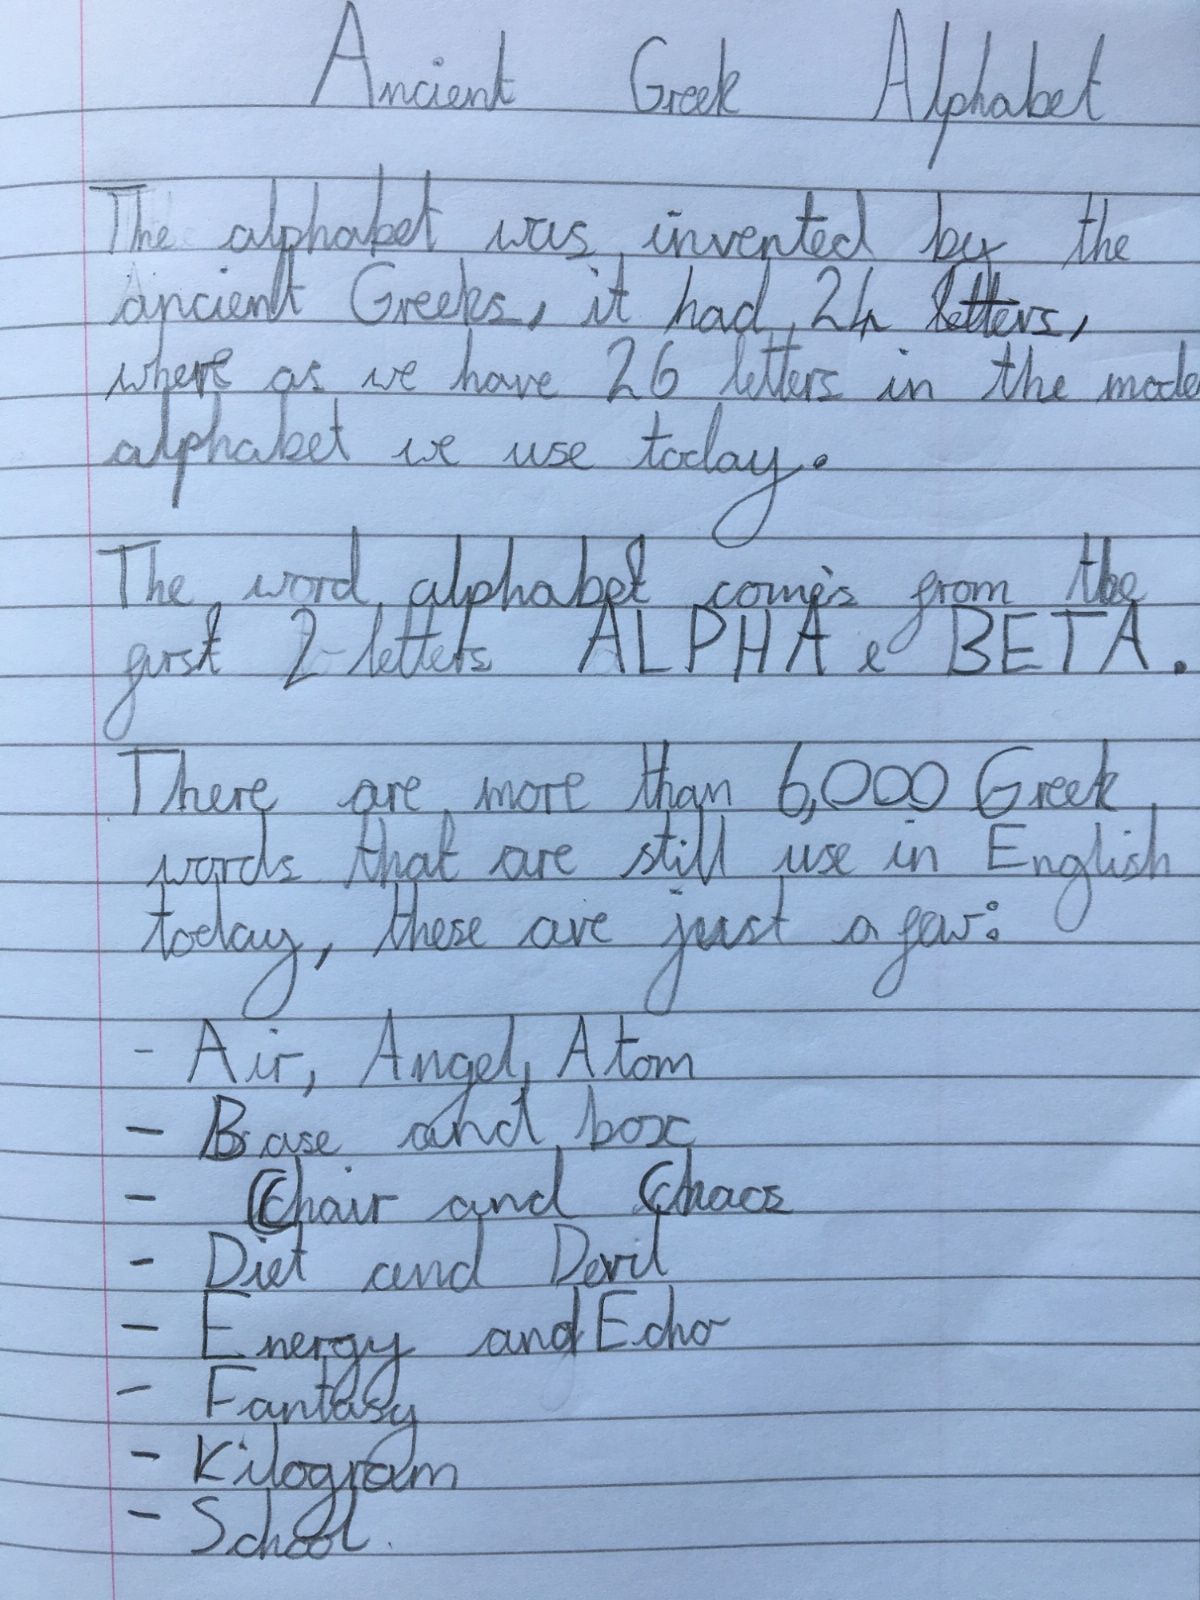 Ancient Greek Alphabet
The alphabet was invented by the
ancient Greeks, it had 24 letters,
where as we have 26 letters in the mode
alphabet we use today.
The word alphabet comes from the
first 2 letters ALPHA e BETA.
There are more than 6,000 Greek
words that are still use in English
today, these are just a few:
- Air, Angel, Atom
- Base and box
- Chair and Chaos
- Diet and Devil
- Energy and Echo
- Fantasy
- Kilogram
- School.